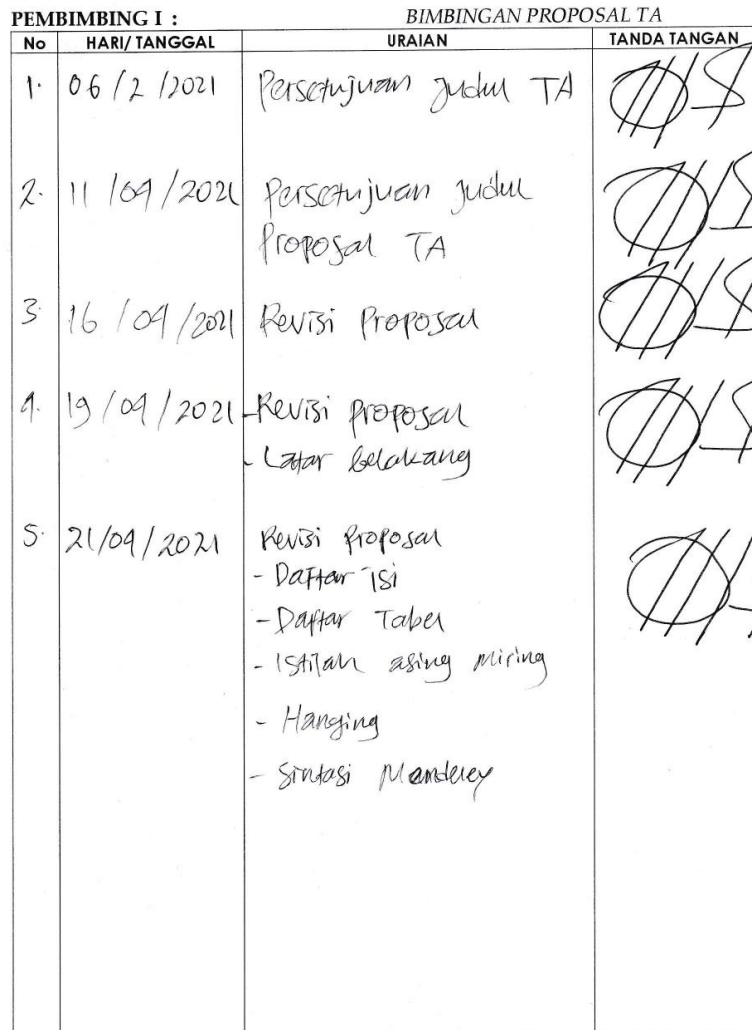 PEMBIMBING I : BIMBINGAN PROPOSAL TA
No HARI/ TANGGAL URAIAN TANDA TANGAN
1. 06/2/2021 Persetujuan Judul TA
2. 11/04/2021 Persetujuan Judul
Proposal TA
3. 16/04/2021 Revisi Proposal
4. 19/04/2021 - Revisi proposal
- Latar belakang
5. 21/04/2021 Revisi Proposal
- Daftar isi
- Daftar Tabel
- Istilah asing miring
- Hanging
- Sintasi